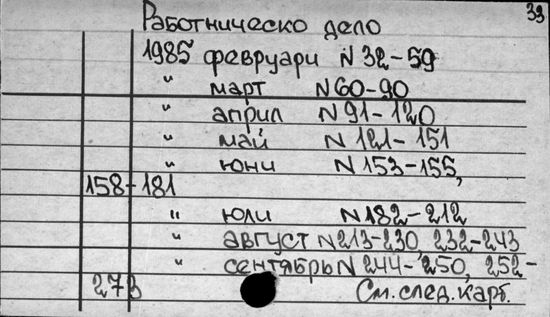 33
Работническо дело
1985 февруари N 32-59
" март N 60-90
" април N 91-120
" май N 121-151
" юни N 153-155,
158-181
" юли N 182-212
" август N 213-230, 232-243
" сентябрь N 244-250, 252-
273 См. след. карт.